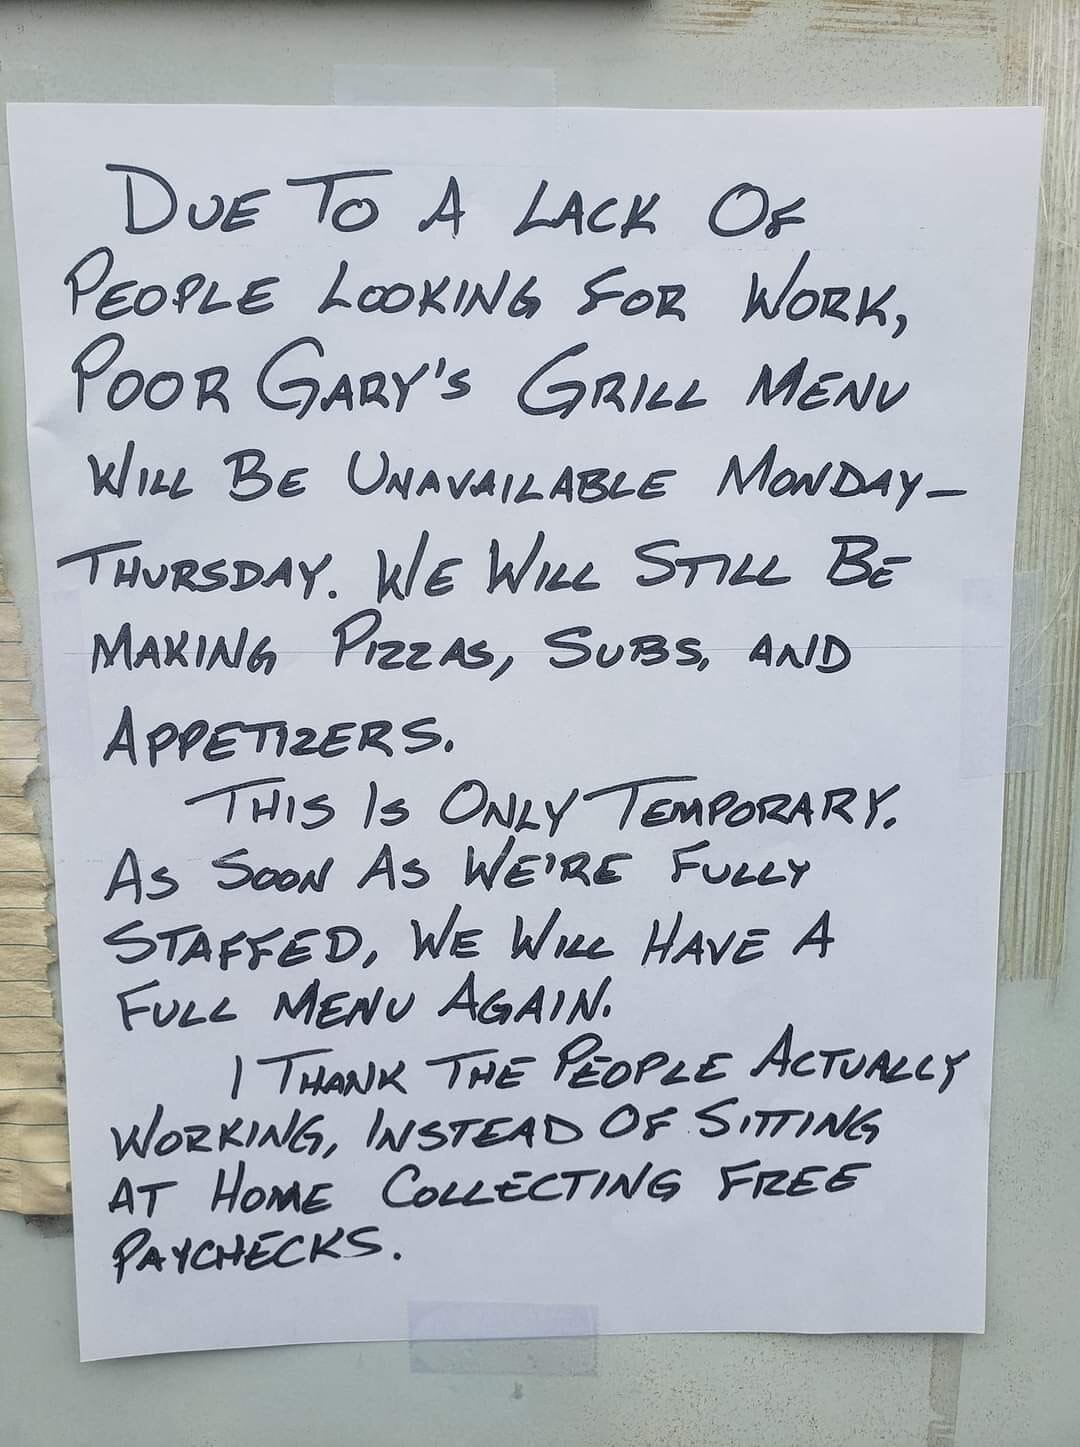 DUE TO A LACK OF
PEOPLE LOOKING FOR WORK,
POOR GARY'S GRILL MENU
WILL BE UNAVAILABLE MONDAY-
THURSDAY. WE WILL STILL BE
MAKING PIZZAS, SUBS, AND
APPETIZERS.
THIS IS ONLY TEMPORARY.
AS SOON AS WE'RE FULLY
STAFFED, WE WILL HAVE A
FULL MENU AGAIN.
I THANK THE PEOPLE ACTUALLY
WORKING, INSTEAD OF SITTING
AT HOME COLLECTING FREE
PAYCHECKS.